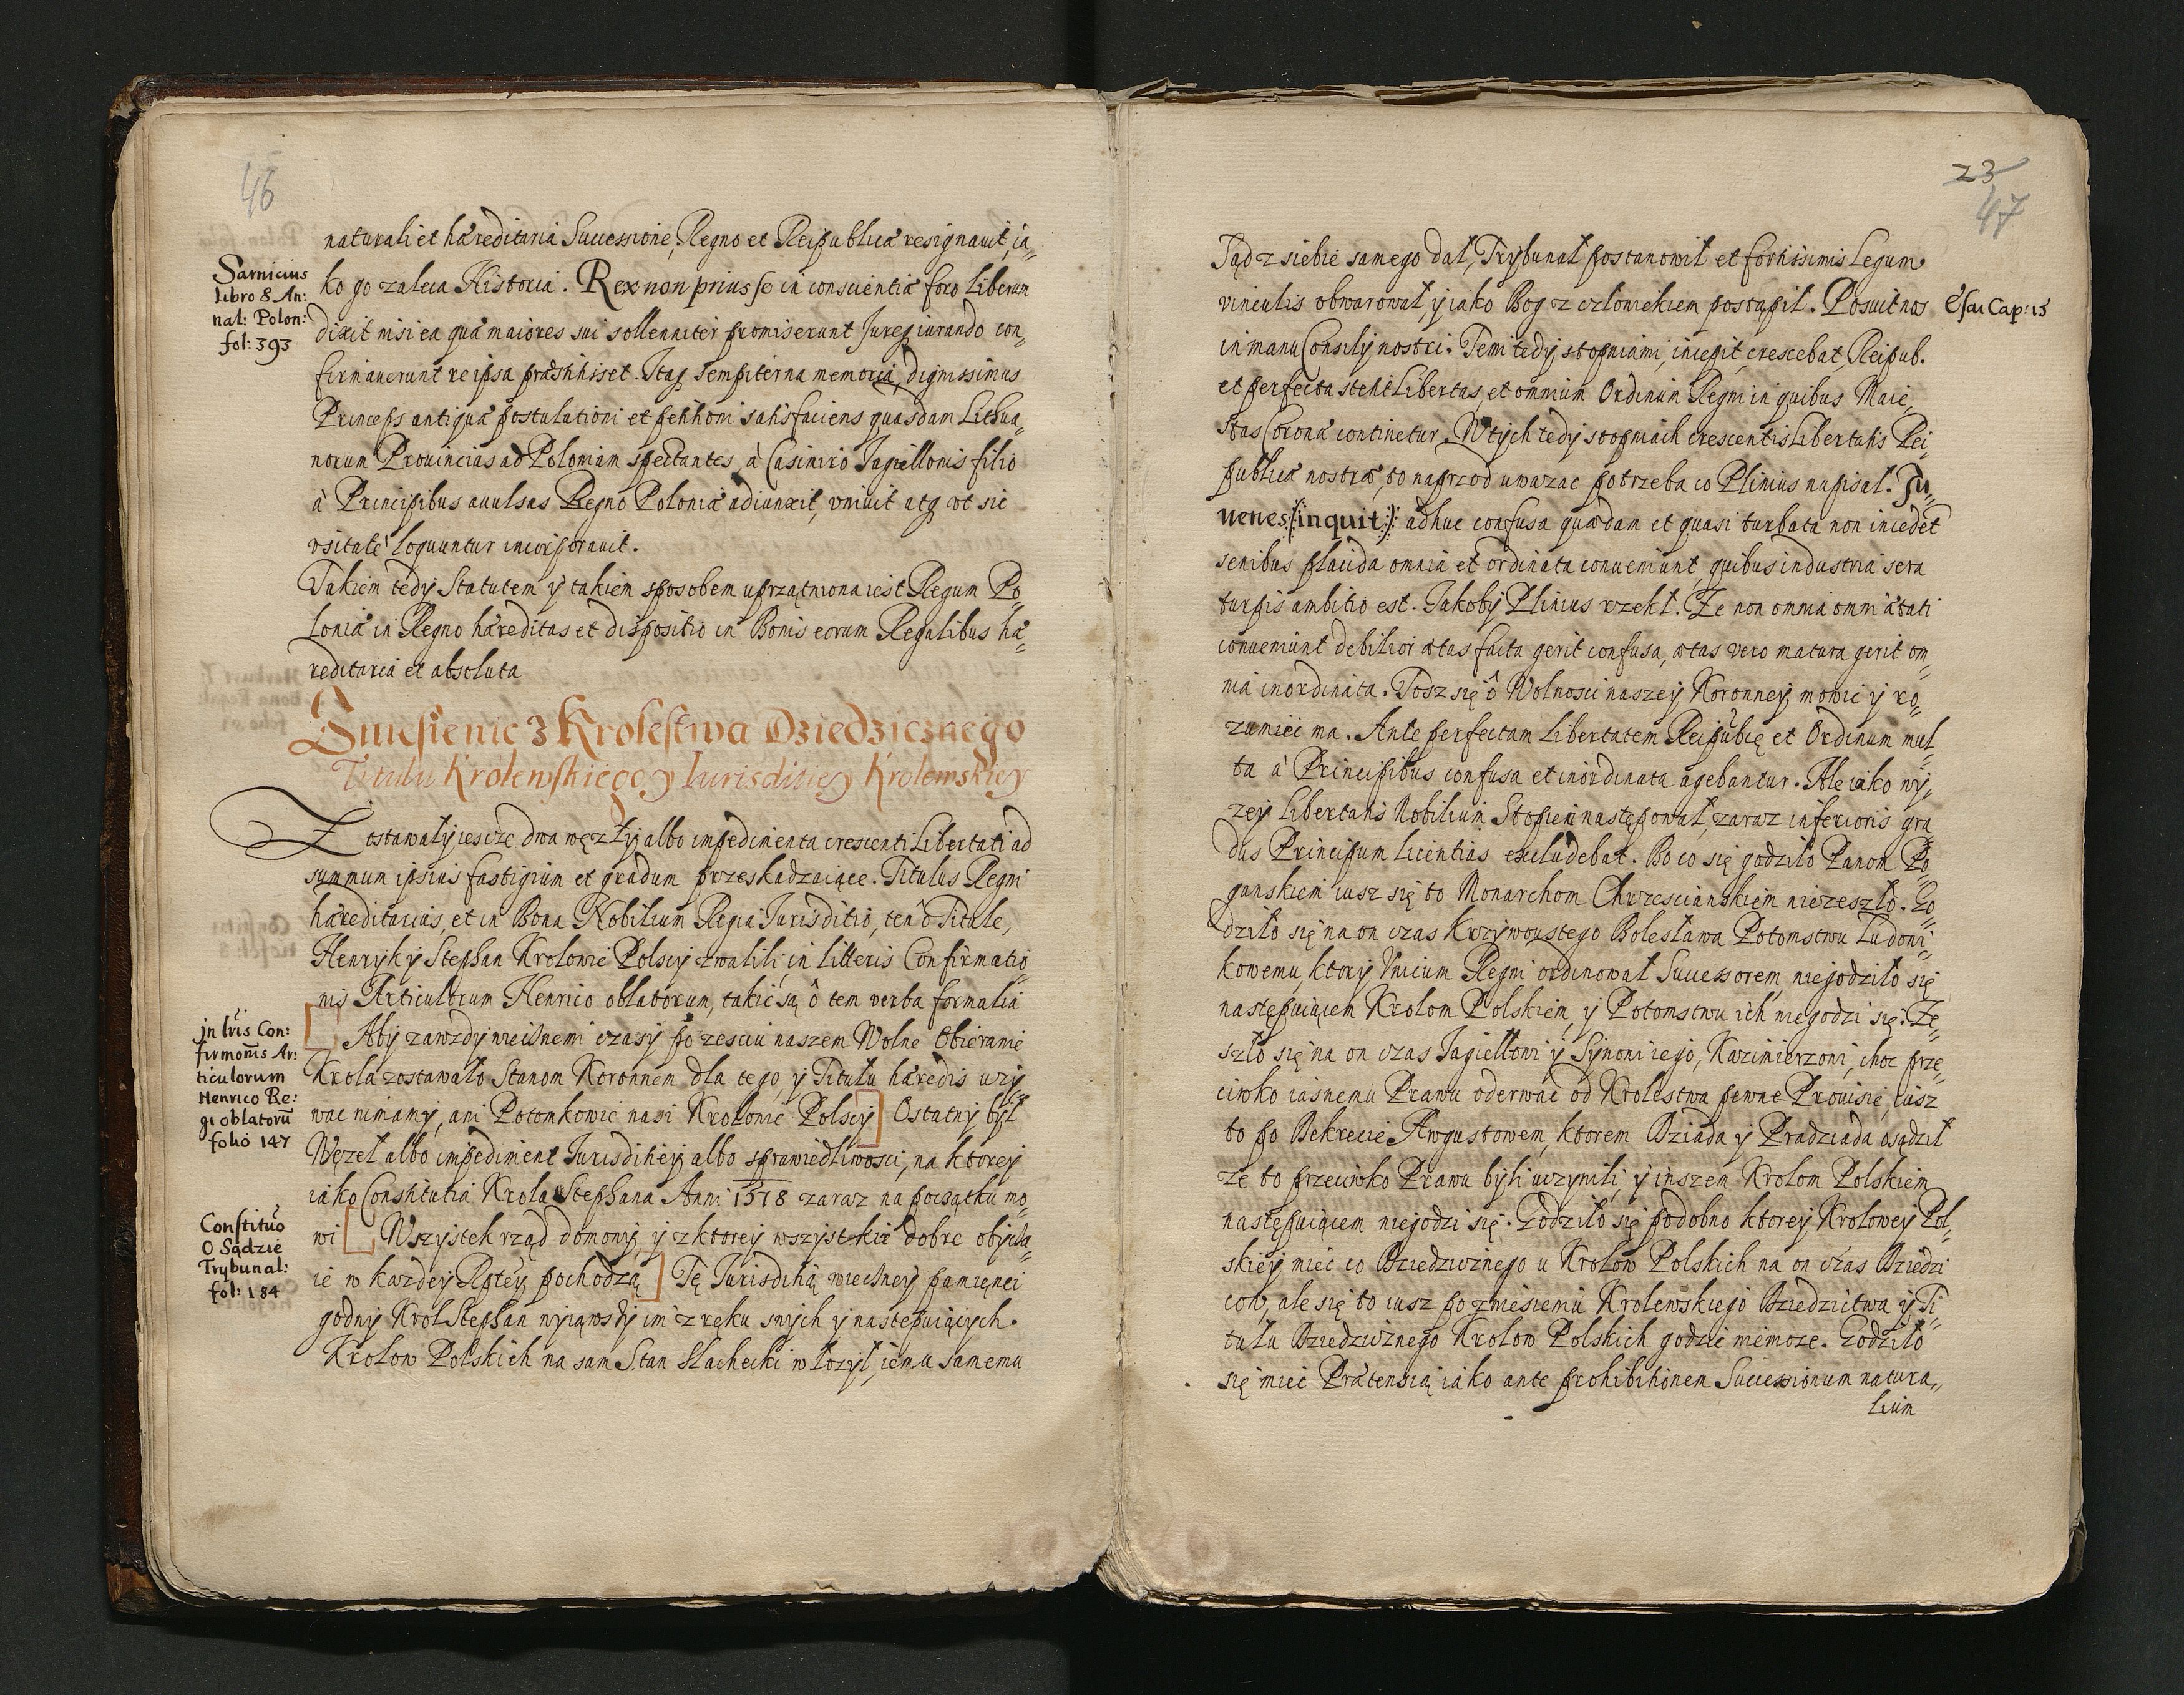 46
naturali et hæreditaria Successione, Regno et Reipublicæ resignauit, ia„
ko go zaleca Historia. Rex non prius se in conscientiæ foro liberum
dixit nisi ea quæ maiores sui sollenniter promiserunt Jureq iurando con„
firmauerunt re ipsa præstitisset. Itaq sempiterna memoria, dignissimus
Princeps antiquæ postulationi et petitioni satisfaciens quasdam Lithua„
norum Prouincias ad Poloniam spectantes, à Casimiro Jagiellonis filio
à Principibus auulsas Regno Poloniæ adiunxit, vniuit atq vt sic
vsitatè loquuntur incorporauit.
Takiem tedy Statutem y takiem sposobem uprzątniona iest Regum Po„
loniæ in Regno hæreditas et dispositio in Bonis eorum Regalibus hæ„
reditaria et absoluta
Sarnicius
libro 8 An:
nal: Polon:
fol: 393
Zniesienie z Krolestwa Dziedzicznego
Titulu Krolewskiego y Iurisditiey Krolewskiey
Zostawaly iescze dwa węzly albo impedimenta crescenti Libertati ad
summum ipsius fastigium et gradum przeskadzaiące. Titulus Regni
hæreditarius, et in Bona Nobilium Regia Jurisditio, ten ô Titule,
Henryk y Stephan Krolowie Polscy zwalili in litteris Confirmatio„
nis Articulorum Henrico oblatorum, takie są ô tem verba formalia
Aby zawzdy wiecznemi czasy po zesciu naszem Wolne Obieranie
Krola zostawało Stanom Koronnem dla tego, y Titułu hæredis uzy„
wac nimamy, ani Potomkowie nasi Krolowie Polscy Ostatny był
Węzeł albo impediment Jurisditiey albo sprawiedliwosci, na ktorey
iako Constitutia Krola Stephana Anni 1578 zaraz na początku mo„
wi Wszystek rząd domowy, y z ktorey wszystkie dobre obycza„
ie w kazdey Rptey pochodzą Tę Jurisditią wieczney pamięnci
godny Krol Stephan wyiąwszy im z ręku swych y następuiących
Krolow Polskich na sam Stan Slachecki włozył, iemu samemu
jn lris Con:
firmonis Ar:
ticulorum
Henrico Re:
gi oblatorũ
folio 147
Constituo
O Sądzie
Trybunal:
fol: 184
23
47
Sąd z siebie samego dał, Trybunał postanowił et fortissimis Legum
vinculis obwarował, y iako Bog z człowiekiem postąpił. Posuit nos
in manu Consilij nostri. Temi tedy stopniami, incepit, crescebat, Reipub.
et perfecta stetit Libertas, et omnium Ordinum Regni in quibus Maie„
stas Coronæ continetur. W tych tedy stopniach crescentis Libertatis Rei„
publicæ nostræ, to naprzod uwazac potrzeba co Plinius napisał. Ju„
uenes (inquit) adhuc confusa quædam et quasi turbata non indecet
senibus placida omnia et ordinata conueniunt, quibus industria sera
turpis ambitio est. Jakoby Plinius rzekł. Ze non omnia omni ætati
conueniunt debilior ætas facta gerit confusa, ætas vero matura gerit om„
nia inordinata. Tosz się ô Wolnosci naszey Koronney mowic y ro„
zumiec ma. Ante perfectam Libertatem Reipubcę et Ordinum mul„
ta à Principibus confusa et inordinata agebantur. Ale iako wy„
zey libertatis Nobilium Stopien następował, zaraz inferioris gra„
dus Principum licentias excludebat. Bo co się godziło Panom Po„
ganskiem iusz się to Monarchom Chrzescianskiem niezeszło. Go„
dziło się na on czas Krzywoustego Bolesława Potomstwu Ludowi„
kowemu, ktory Vnicum Regni ordinował Successorem, niegodziło się
następuiącem Krolom Polskiem, y Potomstwu ich niegodzi się. Ze„
szło się na on czas Jagiełłowi y Synowi iego, Kazimierzowi, choc prze„
ciwko iasnemu Prawu oderwać od Krolestwa pewne Prouincie, iusz
to po Dekrecie Awgustowem, ktorem Dziada y Pradziada osądził
ze to przeciwko Prawu byli uczynili, y inszem Krolom Polskiem
następuiącem niegodzi się. Godziło się podobno ktorey Krolowey Pol„
skiey miec co Dziedzicznego u Krolow Polskich na on czas Dziedzi
cow, ale się to iusz po zniesieniu Krolewskiego Dziedzictwa y Ti„
tułu Dziedzicznego Krolow Polskich godzic niemoze. Godziło
się miec Prætensią iako ante prohibitionem Successionum natura„
lium
Esai Cap: 15